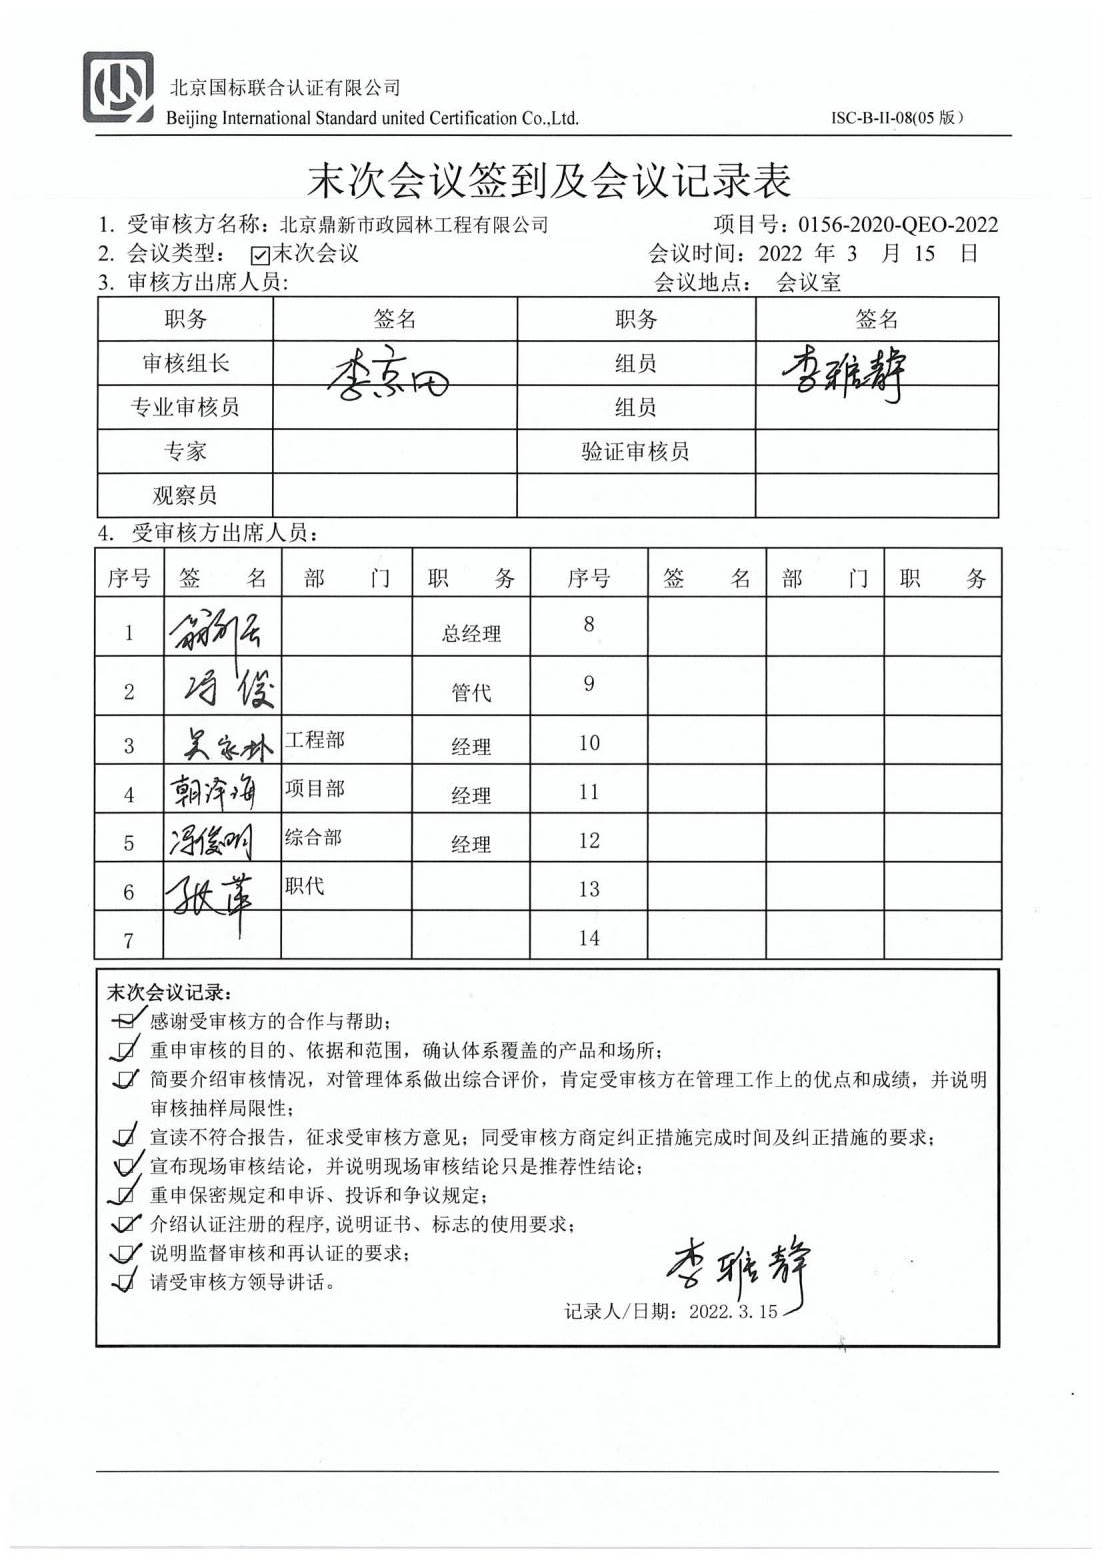 北京国标联合认证有限公司
Beijing International Standard united Certification Co.,Ltd. ISC-B-II-08(05 版)
末次会议签到及会议记录表
1. 受审核方名称：北京鼎新市政园林工程有限公司 项目号：0156-2020-QEO-2022
2. 会议类型： ☑末次会议 会议时间：2022 年 3 月 15 日
3. 审核方出席人员: 会议地点： 会议室
职务 签名 职务 签名
审核组长 李京田 组员 李雅静
专业审核员 组员
专家 验证审核员
观察员
4. 受审核方出席人员：
序号 签 名 部 门 职 务 序号 签 名 部 门 职 务
1 总经理 8
2 冯俊 管代 9
3 工程部 经理 10
4 朝泽海 项目部 经理 11
5 冯俊明 综合部 经理 12
6 张萍 职代 13
7 14
末次会议记录：
感谢受审核方的合作与帮助；
重申审核的目的、依据和范围，确认体系覆盖的产品和场所；
简要介绍审核情况，对管理体系做出综合评价，肯定受审核方在管理工作上的优点和成绩，并说明
审核抽样局限性；
宣读不符合报告，征求受审核方意见；同受审核方商定纠正措施完成时间及纠正措施的要求；
宣布现场审核结论，并说明现场审核结论只是推荐性结论；
重申保密规定和申诉、投诉和争议规定；
介绍认证注册的程序,说明证书、标志的使用要求；
说明监督审核和再认证的要求；
请受审核方领导讲话。
李雅静
记录人/日期：2022.3.15